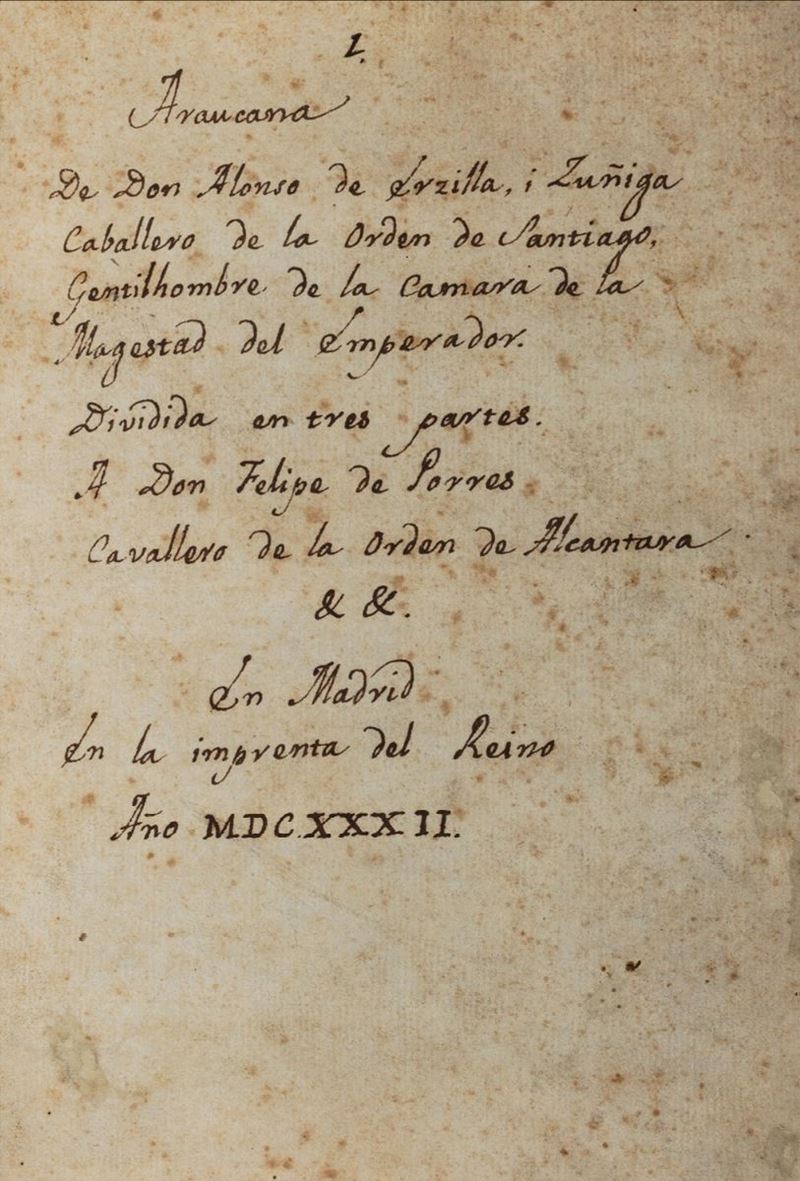 1.
Araucana
De Don Alonso de Erzilla, i Zuñiga
Caballero de la Orden de Santiago,
Gentilhombre de la Camara de la
Magestad del Emperador.
Dividida en tres partes.
A Don Felipe de Porres
Cavallero de la Orden de Alcantara
& &.
En Madrid
En la imprenta del Reino
Año MDCXXXII.